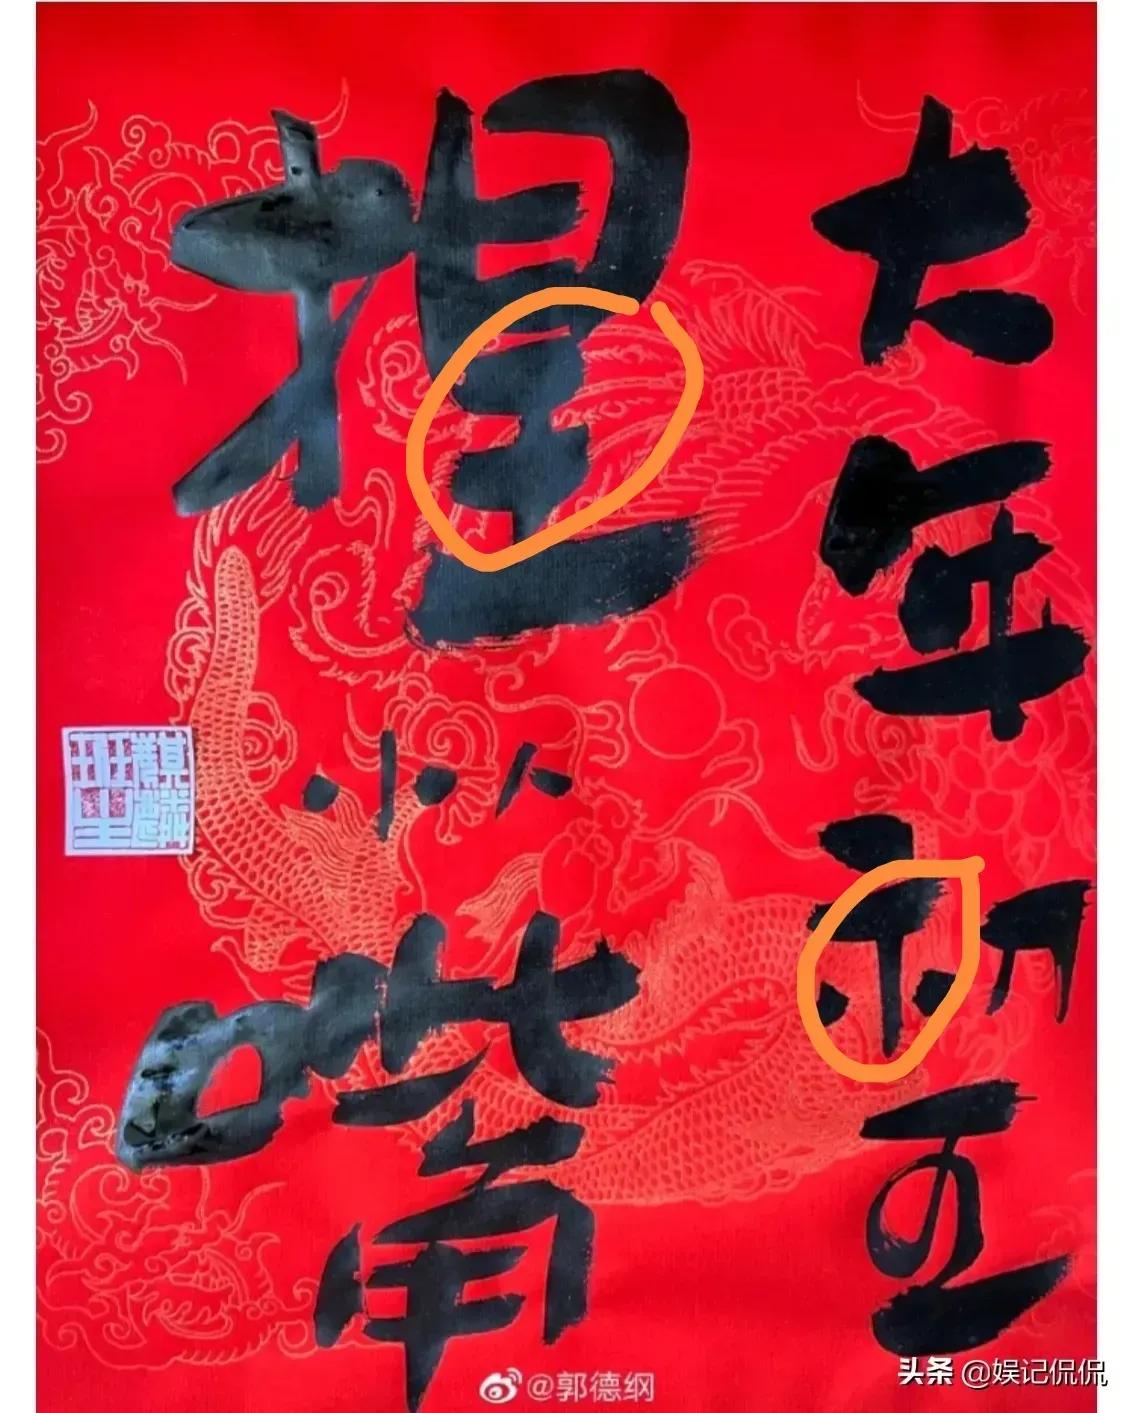 大年初五
捏小人嘴
@郭德纲
头条 @娱记侃侃